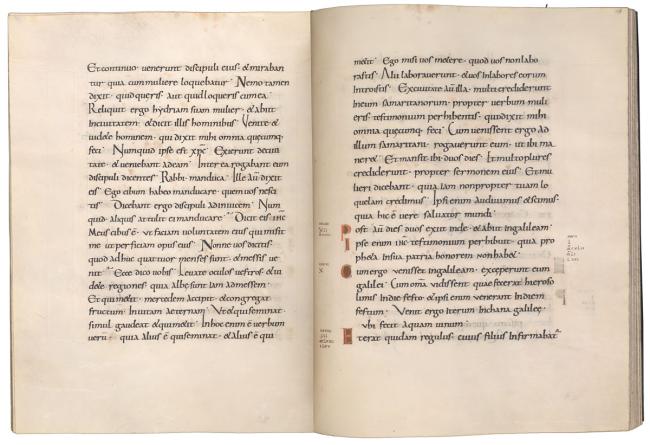 Et continuo venerunt discipuli eius. & miraban
tur quia cum muliere loquebatur. Nemo tamen
dixit. quid queris. aut quid loqueris cum ea.
Reliquit ergo hydriam suam mulier. & abiit
in civitatem. & dicit illis hominibus. Venite &
videte hominem. qui dixit mihi omnia quecumq;
feci. Numquid ipse est xpc. Exierunt de civi
tate. & veniebant ad eam. Interea rogabant eum
discipuli dicentes. Rabbi. manduca. Ille au dixit
eis. Ego cibum habeo manducare. quem vos nesci
tis. Dicebant ergo discipuli adinvicem. Num
quid aliquis attulit ei manducare. Dicit eis ihc
Meus cibus e. ut faciam voluntatem eius qui misit
me ut perficiam opus eius. Nonne vos dicitis.
quod adhuc quattuor menses sunt. & messis ve
nit. Ecce dico vobis. Levate oculos vestros. & vi
dete regiones. quia albe sunt iam ad messem.
Et qui metit. mercedem accipit. & congregat
fructum in vitam aeternam. Ut & qui seminat.
simul gaudeat & qui metit. In hoc enim e verbum
veru. quia alius e qui seminat. & alius e qui
metit. Ego misi vos metere. quod vos non labo
rastis. Alii laboraverunt. & vos in labores eorum
introistis. Ex civitate au illa. multi crediderunt
in eum samaritanorum. propter verbum muli
eris. testimonium perhibentis. quia dixit mihi
omnia quecumq; feci. Cum venissent ergo ad
illum samaritani. rogaverunt eum. ut ibi ma
neret. Et mansit ibi duos dies. Et multo plures
crediderunt. propter sermonem eius. Et mu
lieri dicebant. quia iam non propter tuam lo
quelam credimus. Ipsi enim audivimus & scimus.
quia hic e vere salvator mundi.
Post au dies duos exiit inde. & abiit in galileam.
Ipse enim ihc testimonium perhibuit. quia pro
pheta in sua patria honorem non habet.
Cum ergo venisset in galileam. exceperunt eum
galilei. Cum omnia vidissent quae fecerat hieroso
limis in die festo. & ipsi enim venerant in diem
festum. Venit ergo iterum in chana galileę.
ubi fecit aquam vinum.
Erat quidam regulus. cuius filius infirmabat